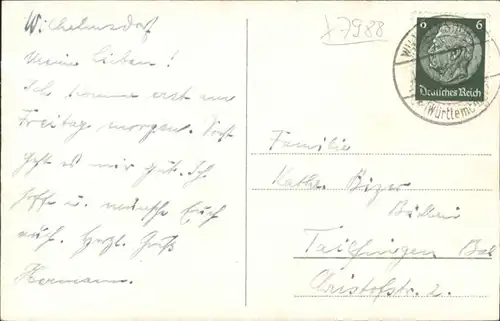 Wilhelmsdorf
Meine Lieben!
Ich komme erst am
Freitag morgen. Sonst
geht es mir gut. Ich
hoffe u. wünsche Euch
auch. Herzl. Grüß
Hermann.
x7988
6 6
Deutsches Reich
(Württemb
Familie
Kath. Bizer
Tailfingen
Christofstr. 2.